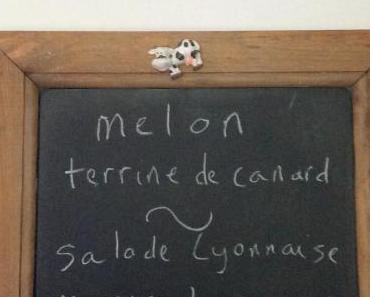 melon
terrine de canard
~
Salade Lyonnaise